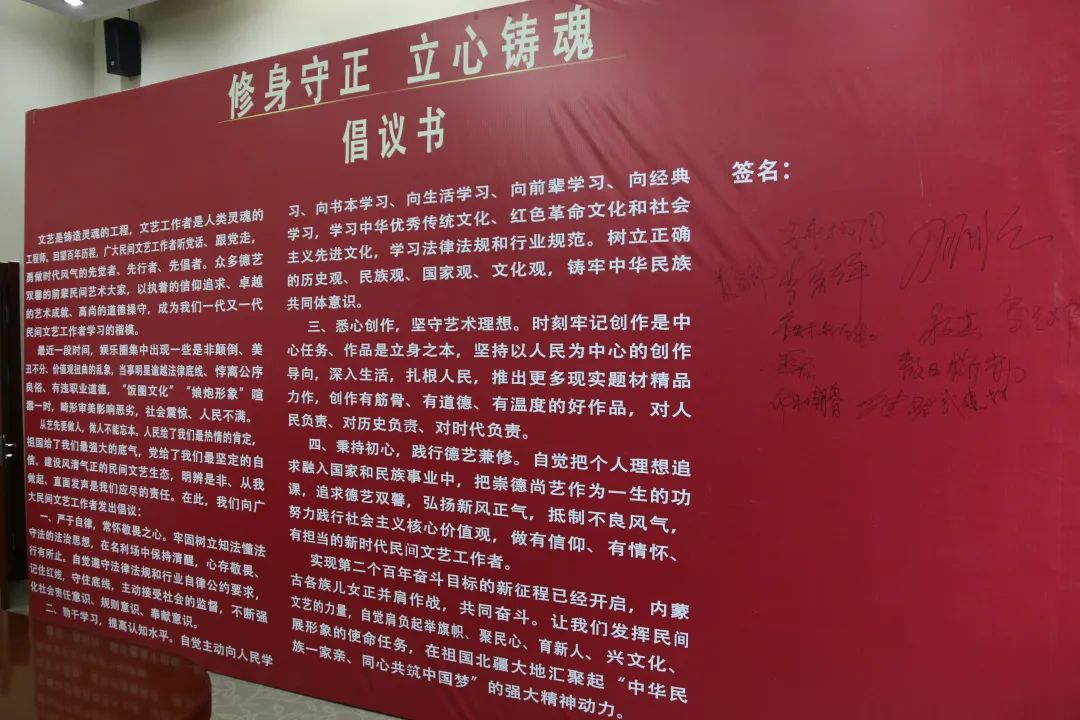 修身守正 立心铸魂
倡议书
文艺是铸造灵魂的工程，文艺工作者是人类灵魂的
工程师。回望百年历程，广大民间文艺工作者听党话、跟党走，
勇做时代风气的先觉者、先行者、先倡者。众多德艺
双馨的前辈民间艺术大家，以执着的信仰追求、卓越
的艺术成就、高尚的道德操守，成为我们一代又一代
民间文艺工作者学习的楷模。
最近一段时间，娱乐圈集中出现一些是非颠倒、美
丑不分、价值观扭曲的乱象，当事明星逾越法律底线、悖离公序
良俗、有违职业道德，“饭圈文化”“娘炮形象”喧
嚣一时，畸形审美影响恶劣，社会震惊、人民不满。
从艺先要做人，做人不能忘本。人民给了我们最热情的肯定，
祖国给了我们最强大的底气，党给了我们最坚定的自
信。建设风清气正的民间文艺生态，明辨是非、从我
做起、直面发声是我们应尽的责任。在此，我们向广
大民间文艺工作者发出倡议：
一、严于自律，常怀敬畏之心。牢固树立知法懂法
守法的法治思想，在名利场中保持清醒，心存敬畏、
行有所止。自觉遵守法律法规和行业自律公约要求，
记住红线，守住底线，主动接受社会的监督，不断强
化社会责任意识、规则意识、奉献意识。
二、勤于学习，提高认知水平。自觉主动向人民学
习、向书本学习、向生活学习、向前辈学习、向经典
学习，学习中华优秀传统文化、红色革命文化和社会
主义先进文化，学习法律法规和行业规范。树立正确
的历史观、民族观、国家观、文化观，铸牢中华民族
共同体意识。
三、悉心创作，坚守艺术理想。时刻牢记创作是中
心任务、作品是立身之本，坚持以人民为中心的创作
导向，深入生活，扎根人民，推出更多现实题材精品
力作，创作有筋骨、有道德、有温度的好作品，对人
民负责、对历史负责、对时代负责。
四、秉持初心，践行德艺兼修。自觉把个人理想追
求融入国家和民族事业中，把崇德尚艺作为一生的功
课，追求德艺双馨，弘扬新风正气，抵制不良风气，
努力践行社会主义核心价值观，做有信仰、有情怀、
有担当的新时代民间文艺工作者。
实现第二个百年奋斗目标的新征程已经开启，内蒙
古各族儿女正并肩作战，共同奋斗。让我们发挥民间
文艺的力量，自觉肩负起举旗帜、聚民心、育新人、兴文化、
展形象的使命任务，在祖国北疆大地汇聚起“中华民
族一家亲、同心共筑中国梦”的强大精神动力。
签名：